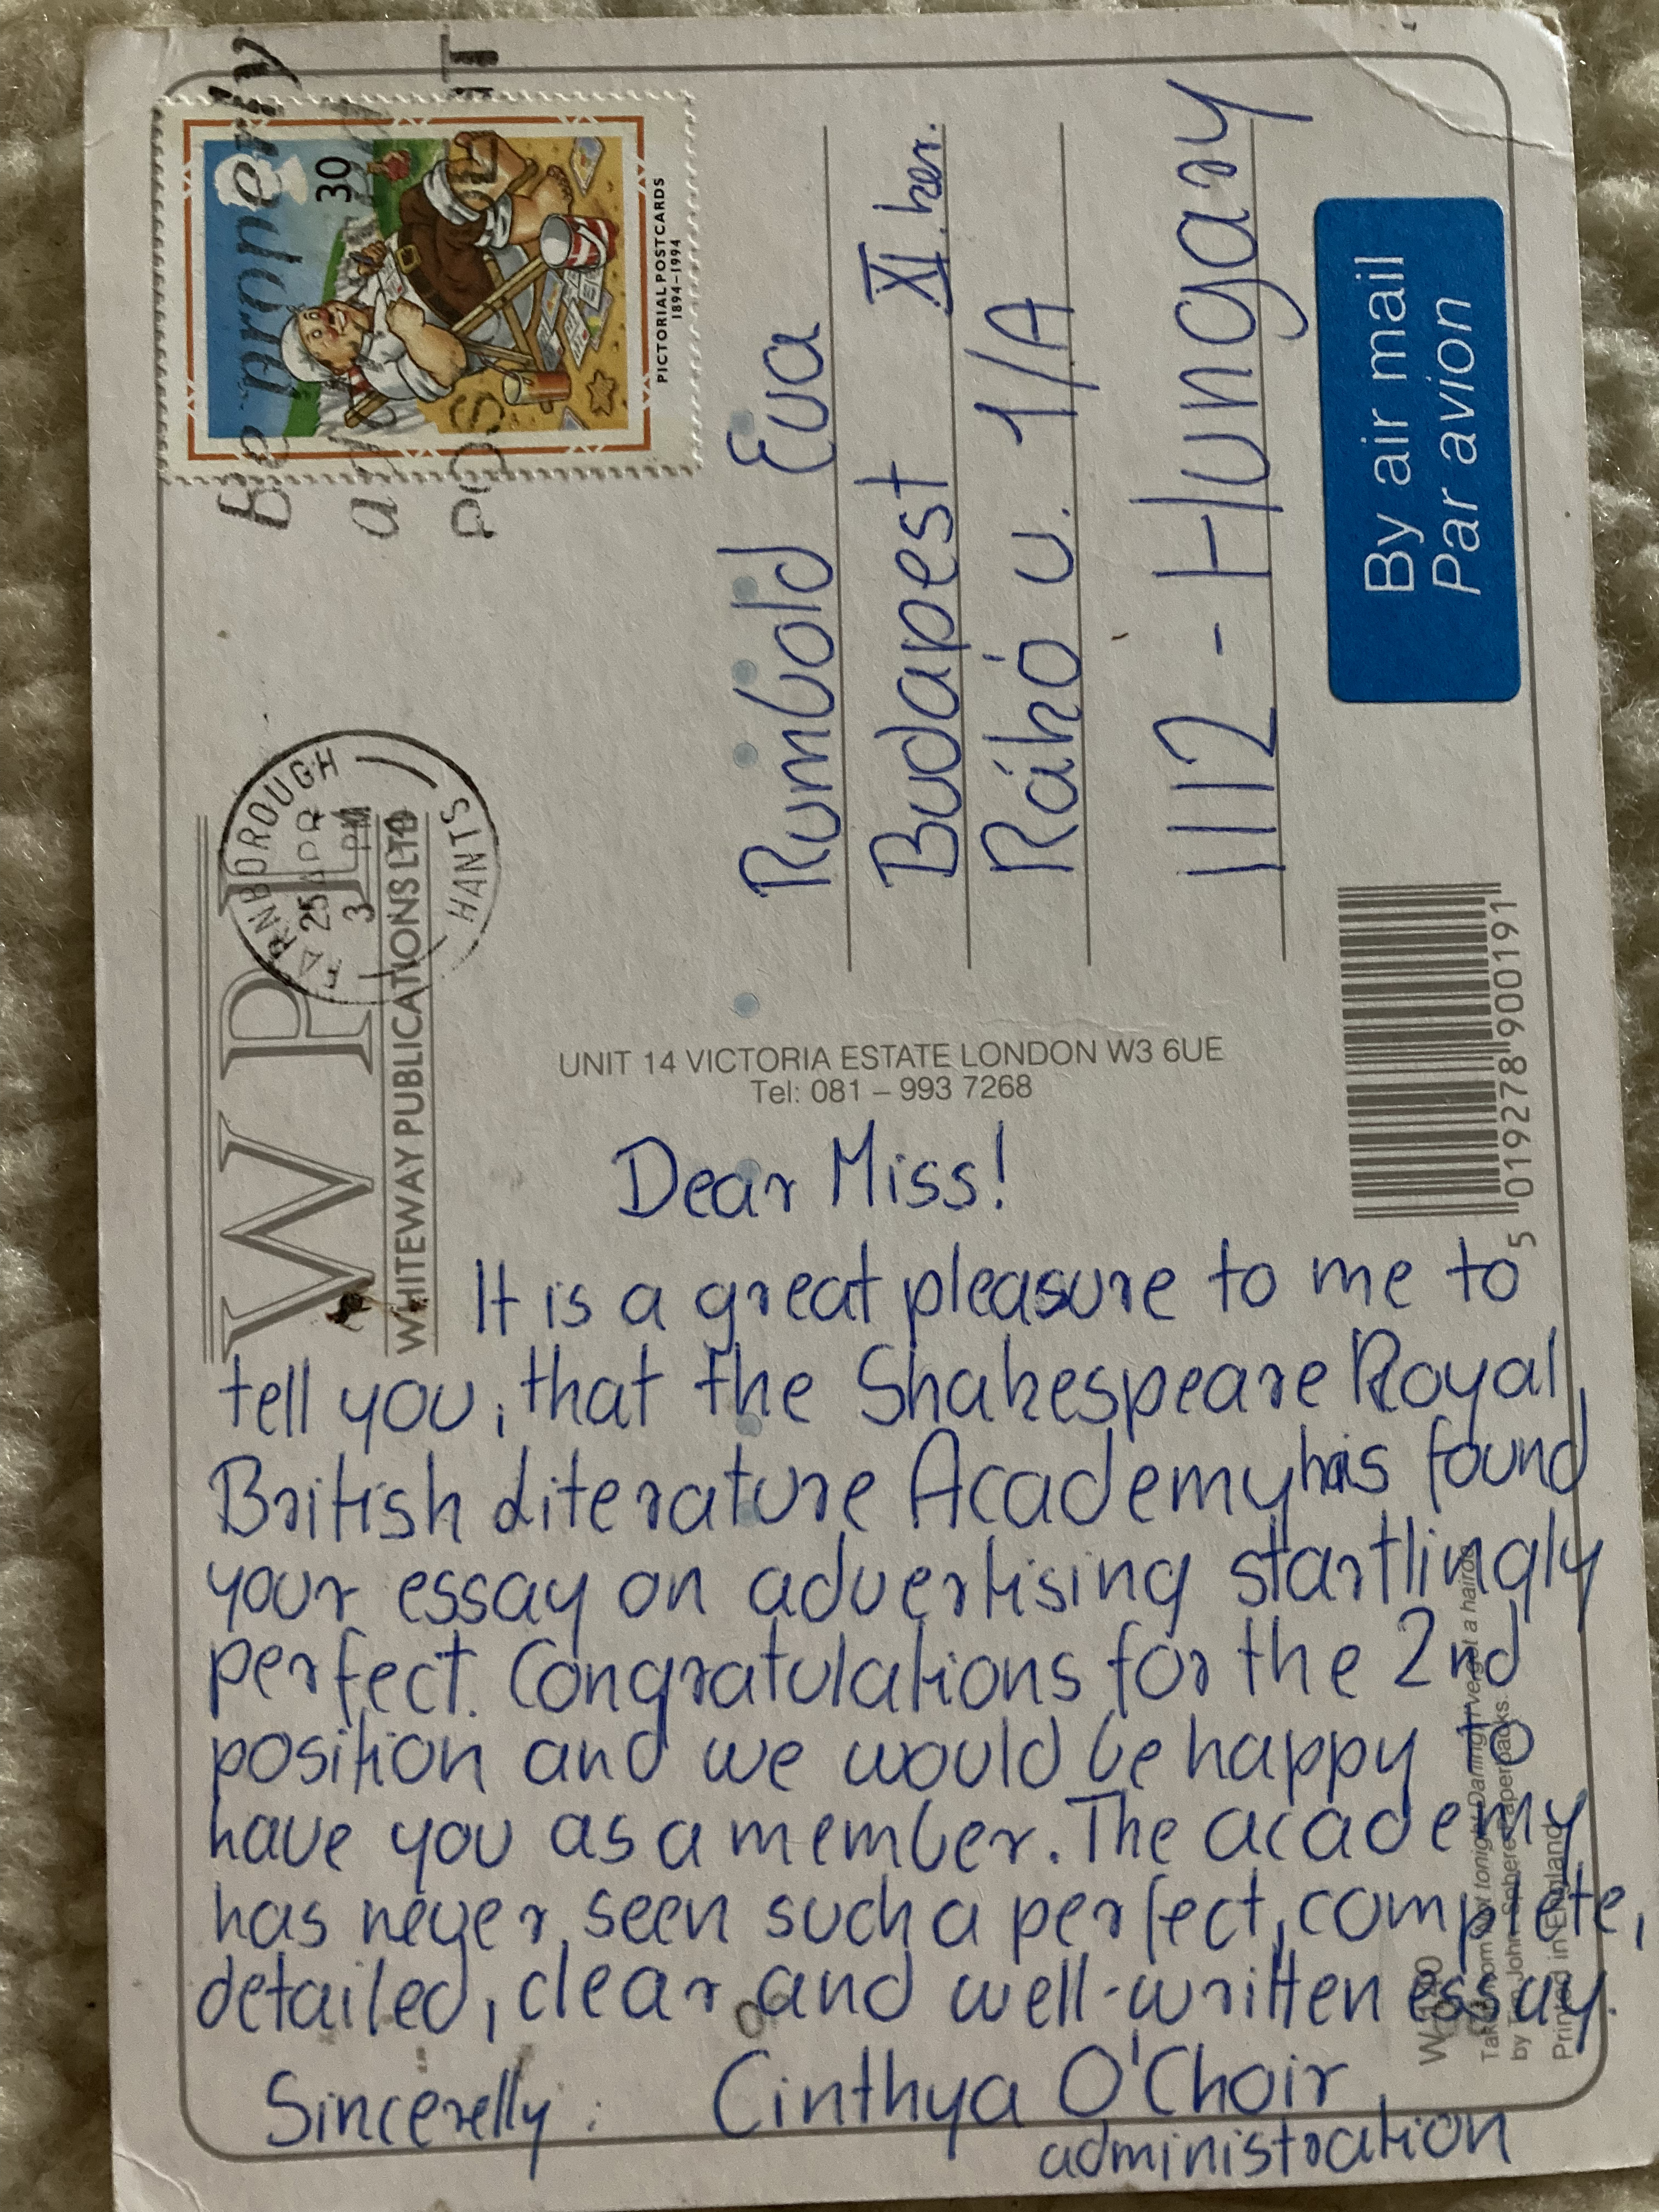 Be properly
a
POS
30
PICTORIAL POSTCARDS
1894–1994
FARNBOROUGH
25 APR
3 PM
HANTS
WPL
WHITEWAY PUBLICATIONS LTD
UNIT 14 VICTORIA ESTATE LONDON W3 6UE
Tel: 081 – 993 7268
Rumbold Eva
Budapest XI. ker.
Ráhó u. 1/A
1112 - Hungary
By air mail
Par avion
5 019278 900191
Dear Miss!
It is a great pleasure to me to
tell you, that the Shakespeare Royal
British Literature Academy has found
your essay on advertising startlingly
perfect. Congratulations for the 2nd
position and we would be happy to
have you as a member. The academy
has never seen such a perfect, complete,
detailed, clear and well-written essay.
Sincerelly: Cinthya O'Choir
administration
tonight Darling, I've got a hairdo
by John Sphere Paperbacks.
Printed in England